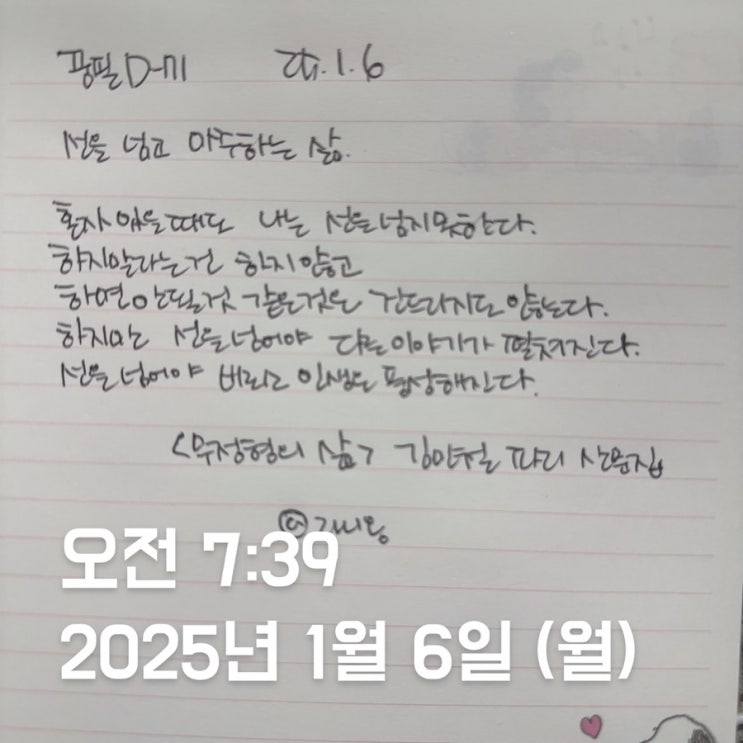 꿍필 D-711 25.1.6
선을 넘고 마주하는 삶.
혼자 있을때도 나는 선을 넘지못한다.
하지말라는건 하지 않고
하면 안될것 같은것은 건드리지도 않는다.
하지만 선을 넘어야 다른 이야기가 펼쳐진다.
선을 넘어야 비로소 인생은 풍성해진다.
<무정형의 삶> 김민철 파리 산문집
오전 7:39
2025년 1월 6일 (월)